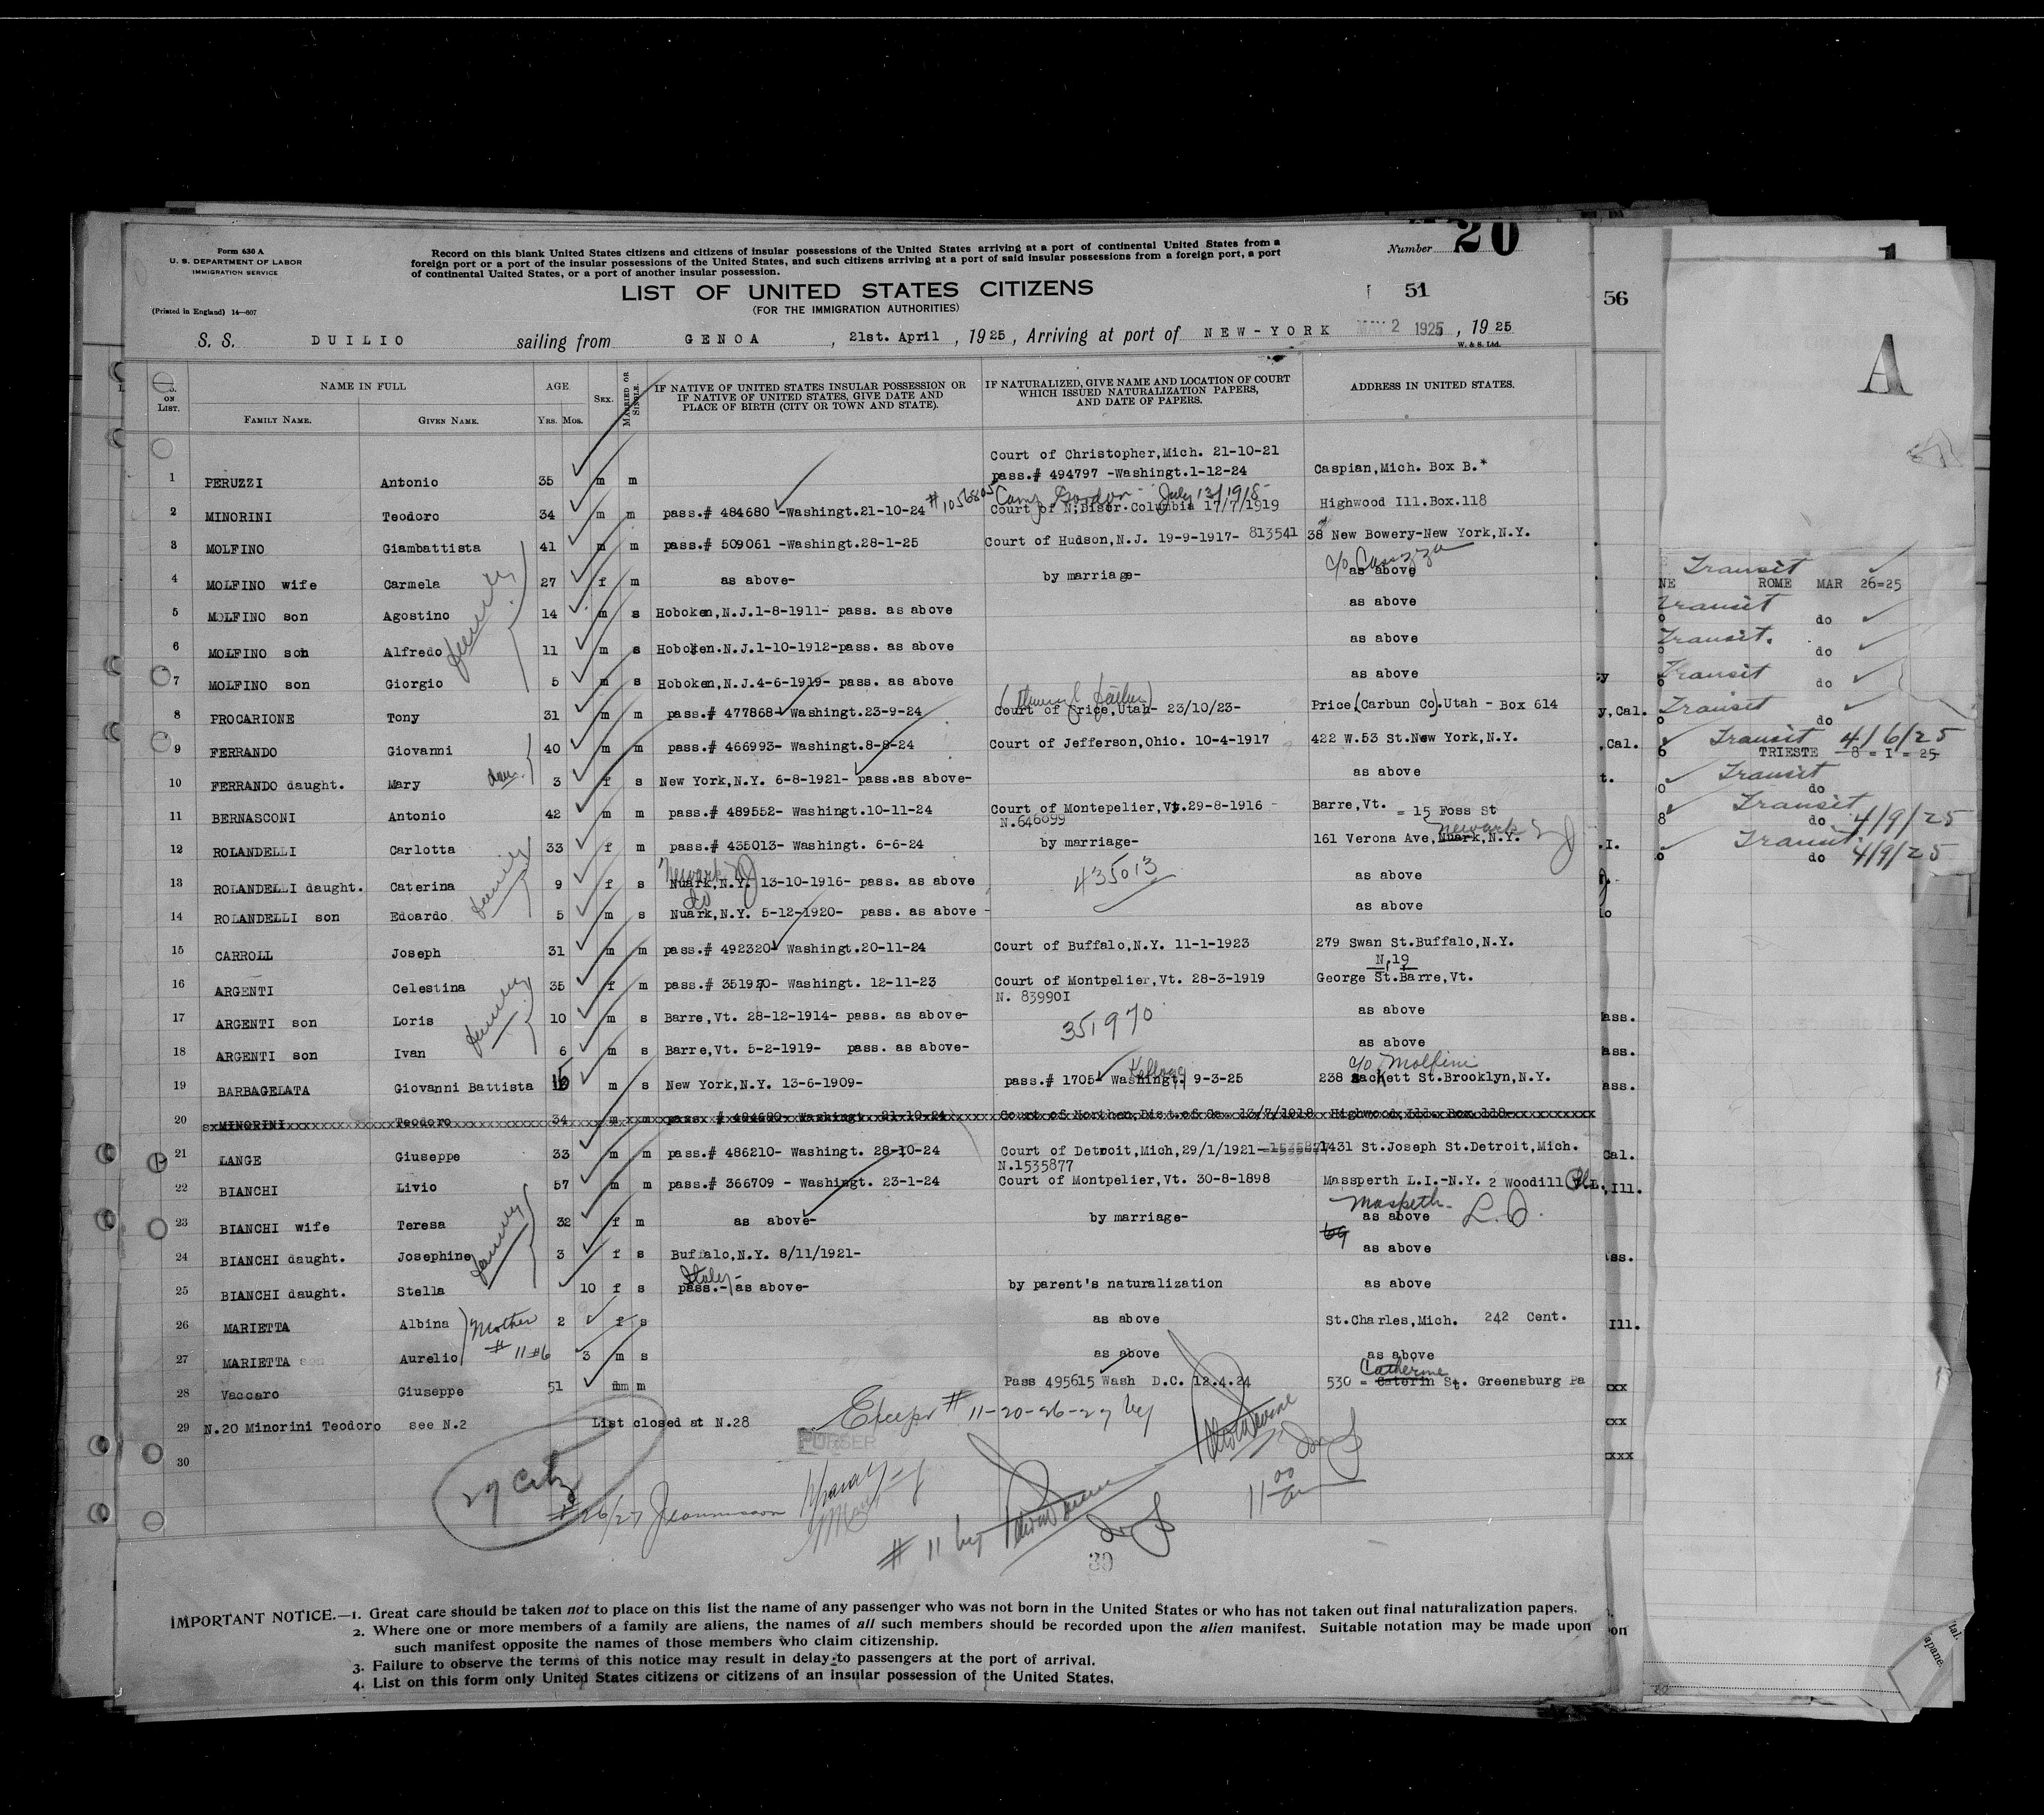 Form 630 A
U. S. DEPARTMENT OF LABOR
IMMIGRATION SERVICE
(Printed in England) 14—607
Record on this blank United States citizens and citizens of insular possessions of the United States arriving at a port of continental United States from a
foreign port or a port of the insular possessions of the United States, and such citizens arriving at a port of said insular possessions from a foreign port, a port
of continental United States, or a port of another insular possession.
Number 20
LIST OF UNITED STATES CITIZENS
(FOR THE IMMIGRATION AUTHORITIES)
51
56
A
S. S. DUILIO sailing from GENOA, 21st. April, 1925, Arriving at port of NEW-YORK MAY 2 1925, 1925
W. & S. Ltd.
No. ON LIST. NAME IN FULL AGE SEX. MARRIED OR SINGLE. IF NATIVE OF UNITED STATES INSULAR POSSESSION OR IF NATIVE OF UNITED STATES, GIVE DATE AND PLACE OF BIRTH (CITY OR TOWN AND STATE). IF NATURALIZED, GIVE NAME AND LOCATION OF COURT WHICH ISSUED NATURALIZATION PAPERS, AND DATE OF PAPERS. ADDRESS IN UNITED STATES.
FAMILY NAME. GIVEN NAME. YRS. MOS.
Court of Christopher,Mich. 21-10-21
1 PERUZZI Antonio 35 m m pass.# 494797 -Washingt.1-12-24 Caspian,Mich. Box B.*
#1056805 Camp Gordon - July 13/1918-
2 MINORINI Teodoro 34 m m pass.# 484680 -Washingt.21-10-24 Court of N.Distr.Columbia 17/7/1919 Highwood Ill.Box.118
3 MOLFINO Giambattista 41 m m pass.# 509061 -Washingt.28-1-25 Court of Hudson,N.J. 19-9-1917- 813541 38 New Bowery-New York,N.Y.
c/o Canzza
4 MOLFINO wife Carmela 27 f m as above- by marriage- as above
5 MOLFINO son Agostino 14 m s Hoboken,N.J.1-8-1911- pass. as above as above
family
6 MOLFINO son Alfredo 11 m s Hoboken.N.J.1-10-1912-pass. as above as above
7 MOLFINO son Giorgio 5 m s Hoboken,N.J.4-6-1919- pass. as above as above
8 PROCARIONE Tony 31 m m pass.# 477868- Washingt.23-9-24 Court of Price,Utah- 23/10/23- Price,(Carbun Co).Utah - Box 614
9 FERRANDO Giovanni 40 m m pass.# 466993- Washingt.8-8-24 Court of Jefferson,Ohio. 10-4-1917 422 W.53 St.New York,N.Y.
10 FERRANDO daught. Mary dau. 3 f s New York,N.Y. 6-8-1921- pass.as above- as above
11 BERNASCONI Antonio 42 m m pass.# 489552- Washingt.10-11-24 Court of Montepelier,Vt.29-8-1916 - Barre,Vt. = 15 Foss St
N.646099
Newark N J
12 ROLANDELLI Carlotta 33 f m pass.# 435013- Washingt. 6-6-24 by marriage- 161 Verona Ave,Nuark,N.Y.
Newark NJ
13 ROLANDELLI daught. Caterina family 9 f s Nuark,N.Y. 13-10-1916- pass. as above 435013 as above
do
14 ROLANDELLI son Edoardo 5 m s Nuark,N.Y. 5-12-1920- pass. as above - as above
15 CARROLL Joseph 31 m m pass.# 492320- Washingt.20-11-24 Court of Buffalo,N.Y. 11-1-1923 279 Swan St.Buffalo,N.Y.
N,19
16 ARGENTI Celestina 35 f m pass.# 351970- Washingt. 12-11-23 Court of Montpelier,Vt. 28-3-1919 George St.Barre,Vt.
N. 83990I
17 ARGENTI son Loris family 10 m s Barre,Vt. 28-12-1914- pass. as above- 351970 as above
18 ARGENTI son Ivan 6 m s Barre,Vt. 5-2-1919- pass. as above- as above
Kellogg c/o Molfini
19 BARBAGELATA Giovanni Battista 15 m s New York,N.Y. 13-6-1909- pass.# 1705- Washingt. 9-3-25 238 Sackett St.Brooklyn,N.Y.
20 MINORINI Teodoro 34 m m pass # 484680- Washingt. 21-10-24 Court of Northen,Dist.of Ga. 13/7/1918 Highwood,Ill. Box 118
21 LANGE Giuseppe 33 m m pass.# 486210- Washingt. 28-10-24 Court of Detroit,Mich,29/1/1921-1535877 1431 St.Joseph St.Detroit,Mich.
N.1535877
22 BIANCHI Livio 57 m m pass.# 366709 - Washingt. 23-1-24 Court of Montpelier,Vt. 30-8-1898 Massperth L.I.-N.Y. 2 Woodill Pl.
Maspeth L.I.
23 BIANCHI wife Teresa 32 f m as above- by marriage- as above
69
24 BIANCHI daught. Josephine family 3 f s Buffalo,N.Y. 8/11/1921- as above
Italy-
25 BIANCHI daught. Stella 10 f s pass.- as above- by parent's naturalization as above
26 MARIETTA Albina Mother 2 f s as above St.Charles,Mich. 242 Cent.
# 11 #6
27 MARIETTA son Aurelio 3 m s as above as above
Catherine
28 Vaccaro Giuseppe 51 m m Pass 495615 Wash D.C. 12.4.24 530 = Caterin St. Greensburg Pa
29 N.20 Minorini Teodoro see N.2 List closed at N.28
Except # 11-20-26-27 by
PURSER
30
27 Citz
# 26/27
11 00 am
# 11 by
30
IMPORTANT NOTICE.—1. Great care should be taken not to place on this list the name of any passenger who was not born in the United States or who has not taken out final naturalization papers.
2. Where one or more members of a family are aliens, the names of all such members should be recorded upon the alien manifest. Suitable notation may be made upon
such manifest opposite the names of those members who claim citizenship.
3. Failure to observe the terms of this notice may result in delay to passengers at the port of arrival.
4. List on this form only United States citizens or citizens of an insular possession of the United States.
y
y,Cal.
,Cal.
t.
.I.
lo
ass.
ass.
ass.
Cal.
,Ill.
ss.
Ill.
xxx
xxx
xxxx
on
Transit
NE ROME MAR 26=25
Transit
o do
Transit.
o do
Transit
o do
Transit
o do
Transit 4/6/25
6 TRIESTE 8 = I = 25
Transit
o do
Transit
8 do 4/9/25
Transit
o do 4/9/25
tal.
apane